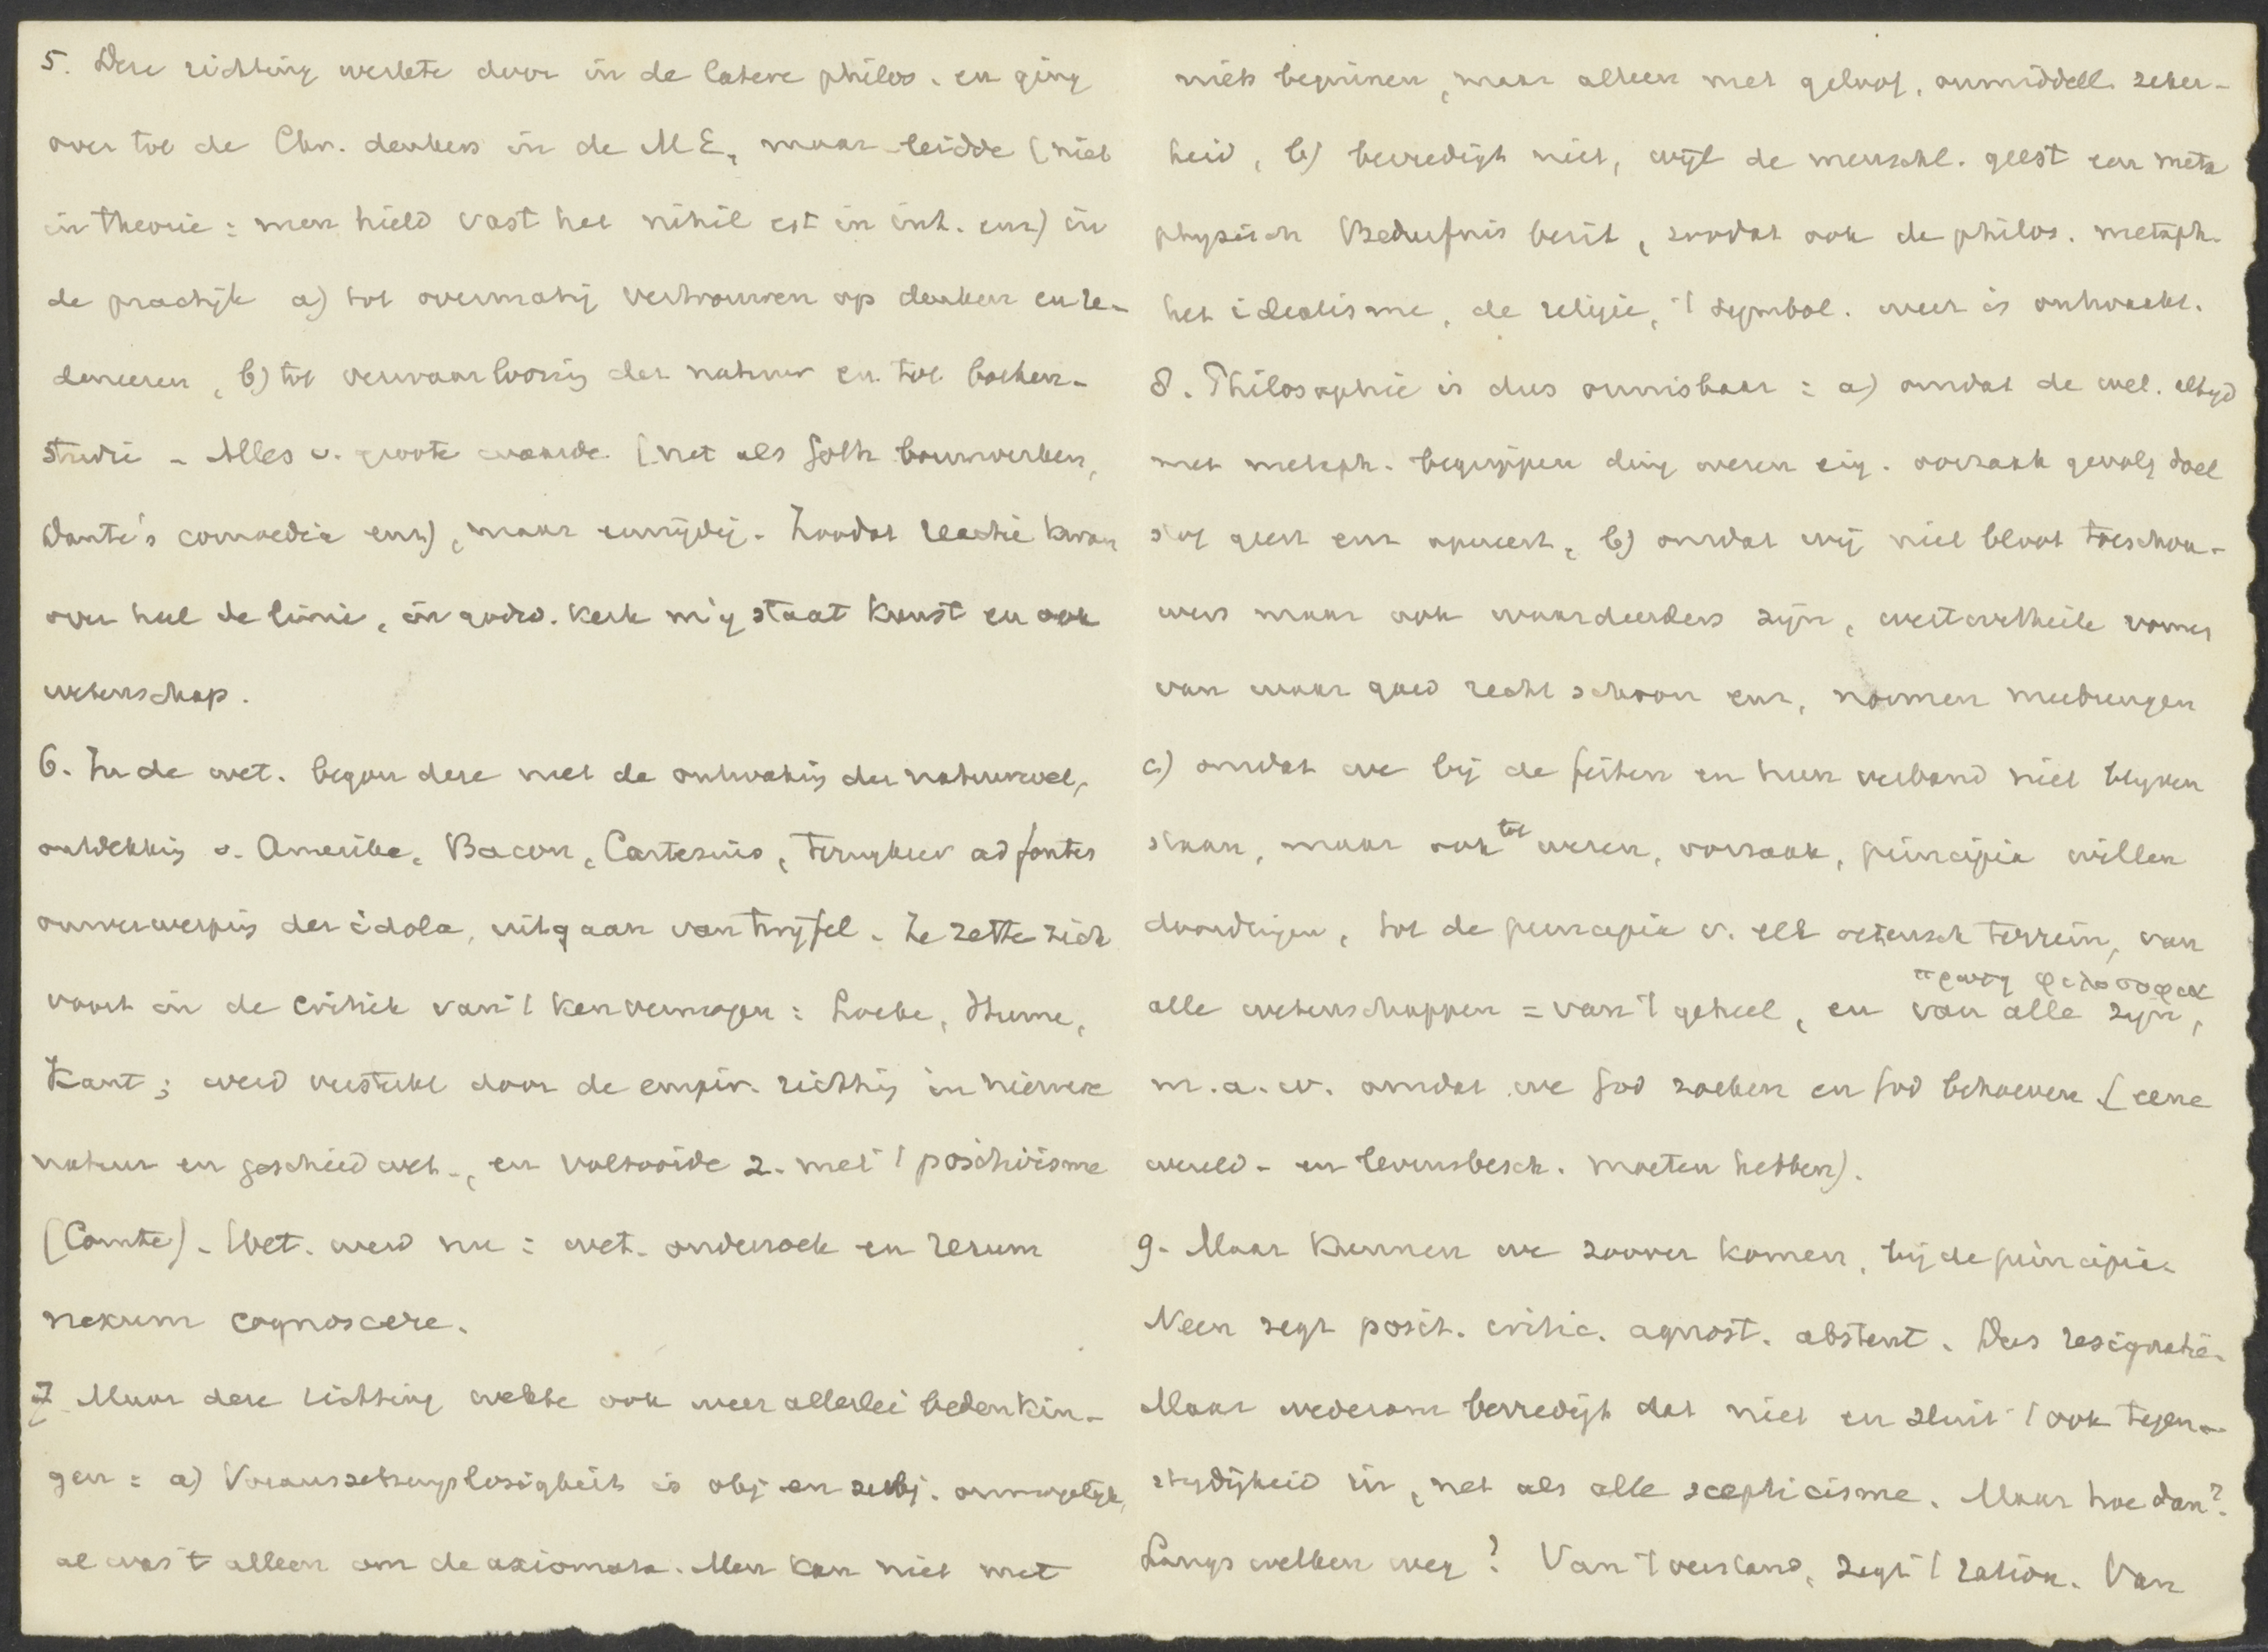 5. Deze richting werkte door in de latere philos. en ging
over tot de Chr. denkers in de M E, maar leidde (niet
in theorie: men hield vast het nihil est in int. enz) in
de practijk a) tot overmatig vertrouwen op denken en re-
deneeren, b) tot verwaarloozing der natuur en tot boeken-
studie - Alles v. groote waarde (net als Goth bouwwerken,
Dante's comoedia enz), maar eenzijdig. Zoodat reactie kwam
over heel de linie, in godsd. kerk mij staat kunst en ook
wetenschap.
6. In de wet. begon deze met de ontwaking der natuurwet,
ontdekking v. Amerika, Bacon, Cartesius, terugkeer ad fontes
omverwerping der idola, uitgaan van twijfel. Ze zette zich
voort in de critiek van 't kenvermogen: Locke, Hume,
Kant; werd versterkt door de empir. richting in nieuwere
natuur en geschied wet-, en voltooide z. met 't positivisme
(Comte). Wet. werd nu: wet. onderzoek en rerum
nexum cognoscere.
7 Maar deze richting wekte ook weer allerlei bedenkin-
gen: a) Voraussetzungslosigkeit is obj en subj. onmogelijk,
al was 't alleen om de axiomata. Men kan niet met
niets beginnen, maar alleen met geloof, onmiddell. zeker-
heid, b) bevredigt niet, wijl de menschl. geest een meta
physisch Bedürfnis bezit, zoodat ook de philos. metaph.
het idealisme, de religie, 't symbol. weer is ontwaakt.
8. Philosophie is dus onmisbaar: a) omdat de wet. altijd
met metaph. begrippen ding wezen eig. oorzaak gevolg doel
stof geest enz opereert, b) omdat wij niet bloot toeschou-
wers maar ook waardeerders zijn, werturtheile vormen
van waar goed recht schoon enz, normen meebrengen
c) omdat we bij de feiten en hun verband niet blijven
staan, maar ook tot wezen, oorzaak, principia willen
doordringen, tot de principia v. elk wetensch terrein, van
πρωτη φιλοσοφια
alle wetenschappen = van 't geheel, en van alle zijn,
m.a.w. omdat we God zoeken en God behoeven (eene
wereld- en levensbesch. moeten hebben).
9. Maar kunnen we zoover komen, bij de principia.
Neen zegt posit. critic. agnost. abstent. Dus resignatie.
Maar wederom bevredigt dat niet en sluit 't ook tegen-
strijdigheid in, net als alle scepticisme. Maar hoe dan?
Langs welken weg? Van 't verstand, zegt 't ration. Van